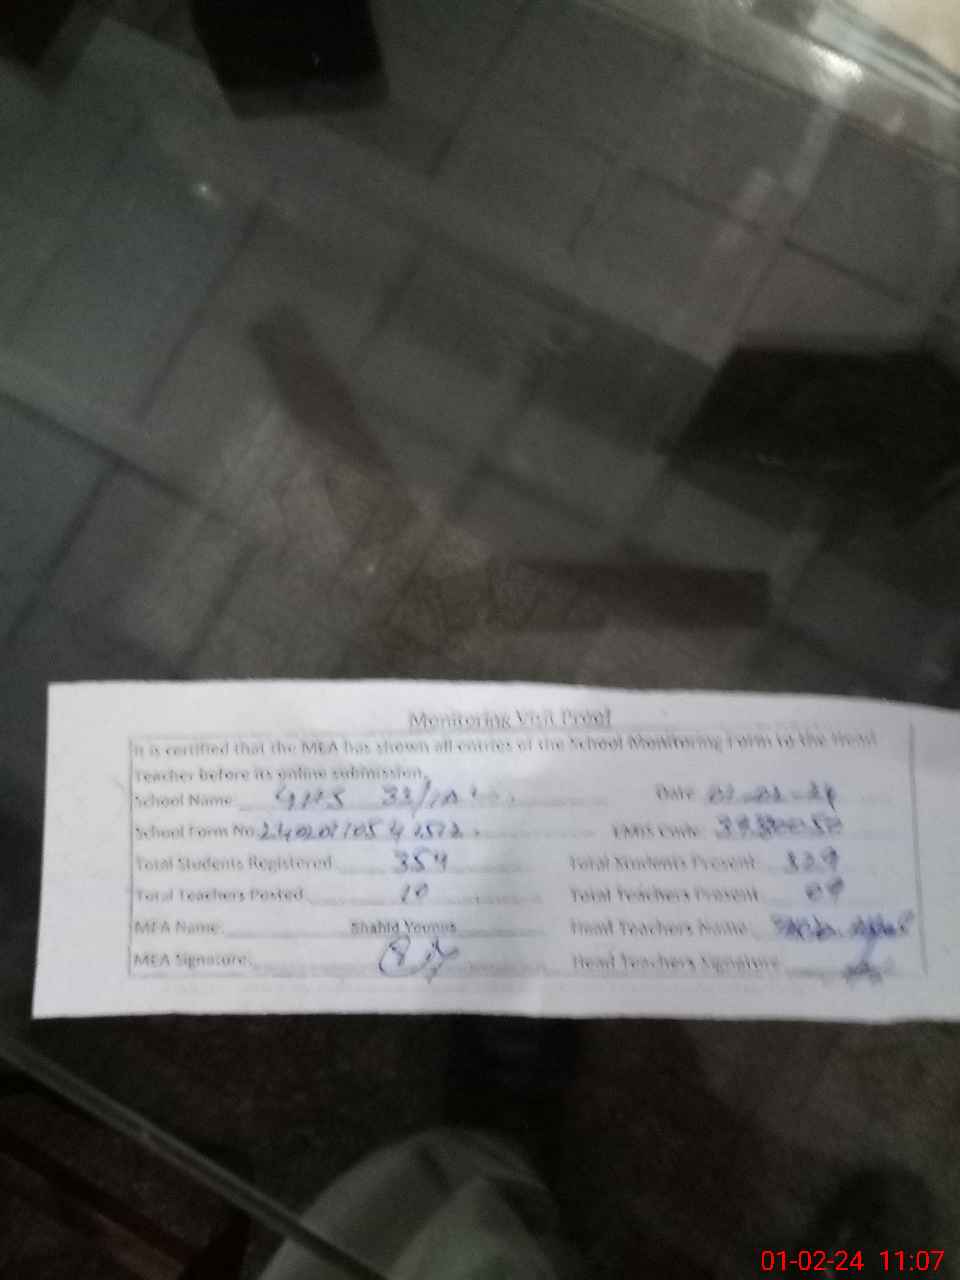 Monitoring Visit Proof
It is certified that the MEA has shown all entries of the School Monitoring Form to the Head
Teacher before its online submission.
School Name Date 01-02-24
School Form No EMIS Code
Total Students Registered 354 Total Students Present 329
Total Teachers Posted 10 Total Teachers Present 09
MEA Name Shahid Younus Head Teachers Name
MEA Signature: Head Teachers Signature
01-02-24 11:07